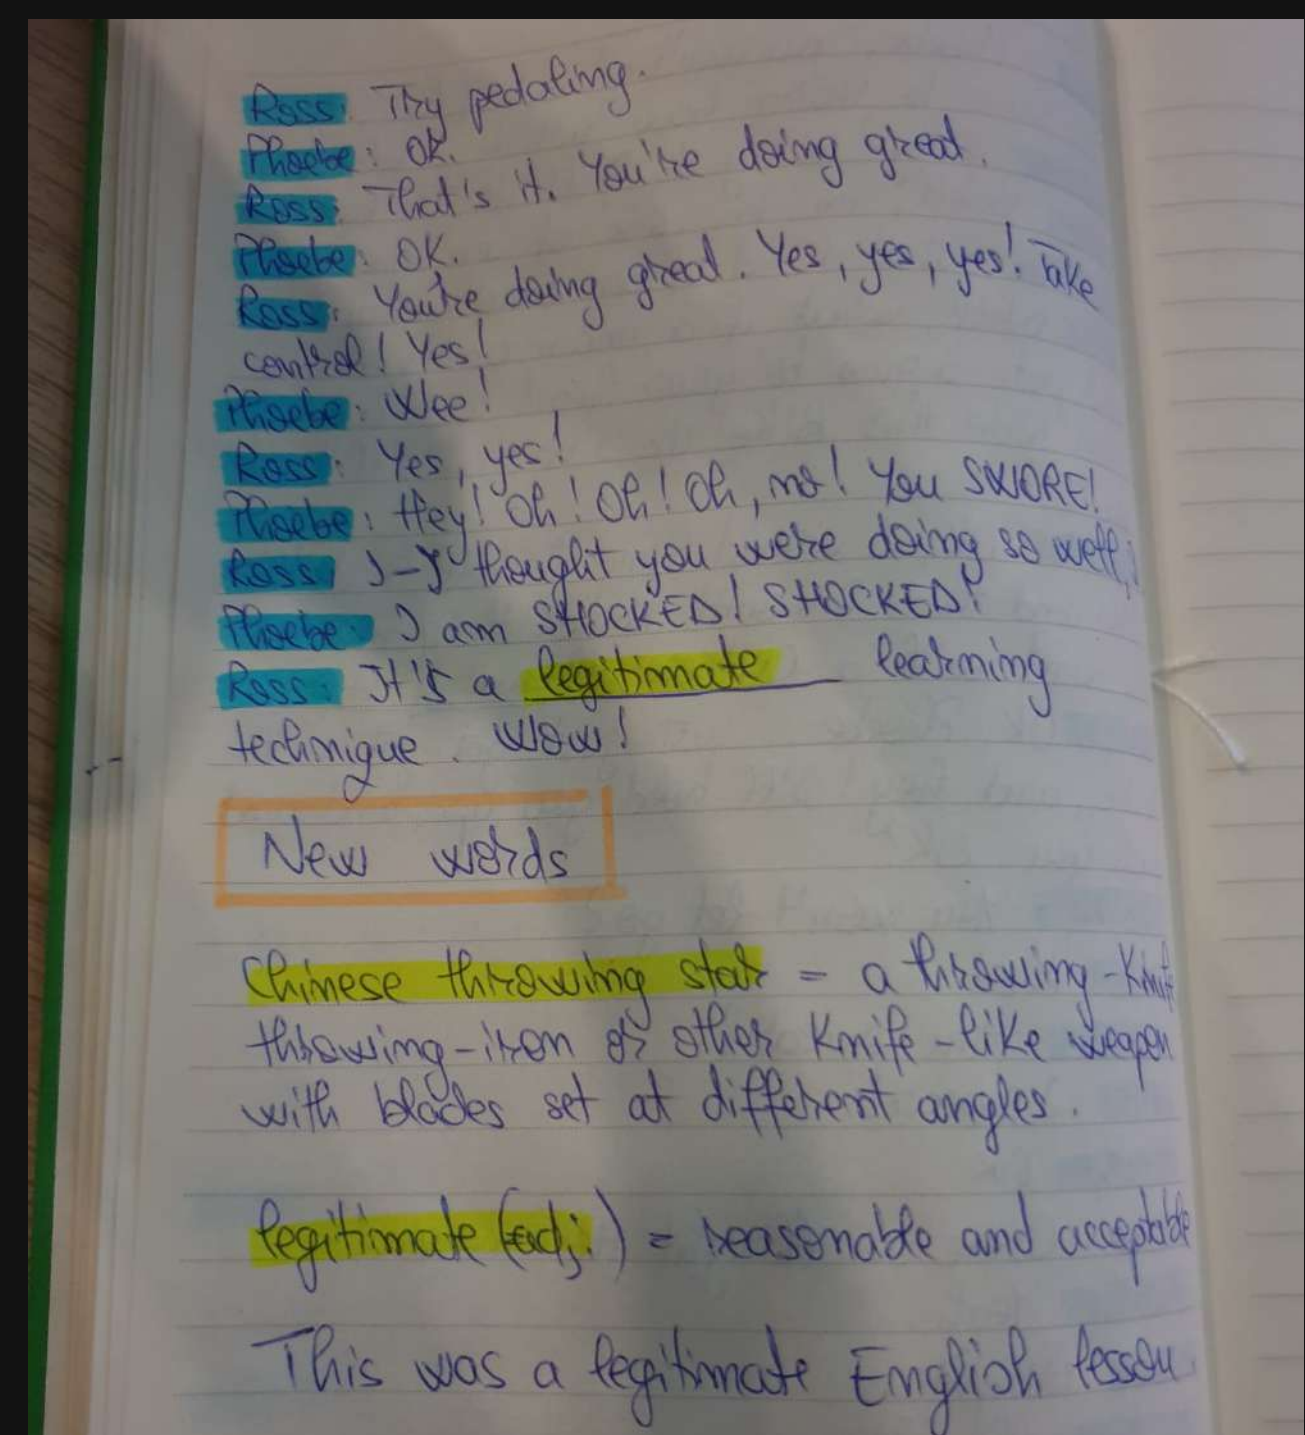 Ross: Try pedaling.
Phoebe: OK.
Ross: That's it. You're doing great.
Phoebe: OK.
Ross: You're doing great. Yes, yes, yes! Take
control! Yes!
Phoebe: Wee!
Ross: Yes, yes!
Phoebe: Hey! Oh! Oh! Oh, no! You SWORE!
Ross: I-I thought you were doing so well,
Phoebe: I am SHOCKED! SHOCKED!
Ross: It's a legitimate learning
technique. Wow!
New words
Chinese throwing star = a throwing-knif
throwing-iron or other knife-like weapon
with blades set at different angles.
legitimate (adj.) = reasonable and acceptable
This was a legitimate English lesson